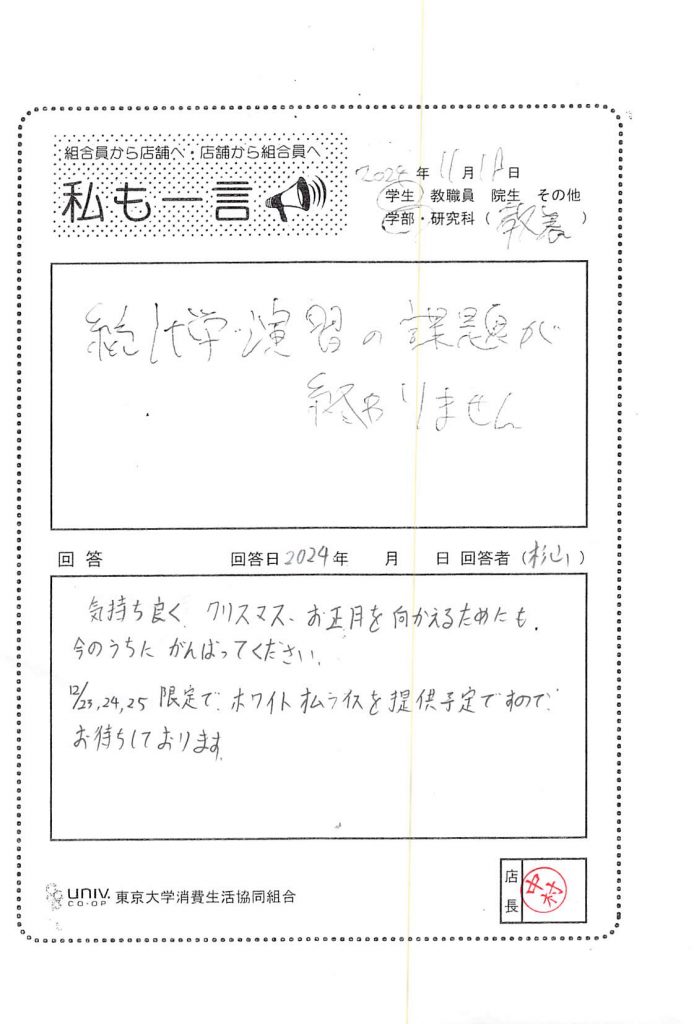 組合員から店舗へ・店舗から組合員へ
私も一言
2024年 11月 1日
学生 教職員 院生 その他
学部・研究科 ( 教養 )
統計学演習の課題が
終わりません
回答 回答日 2024年 月 日 回答者 (杉山)
気持ち良く クリスマス、お正月を向かえるためにも、
今のうちに がんばってください。
12/23,24,25 限定で ホワイトオムライスを提供予定ですので、
お待ちしております。
UNIV. CO-OP 東京大学消費生活協同組合
店長 中村